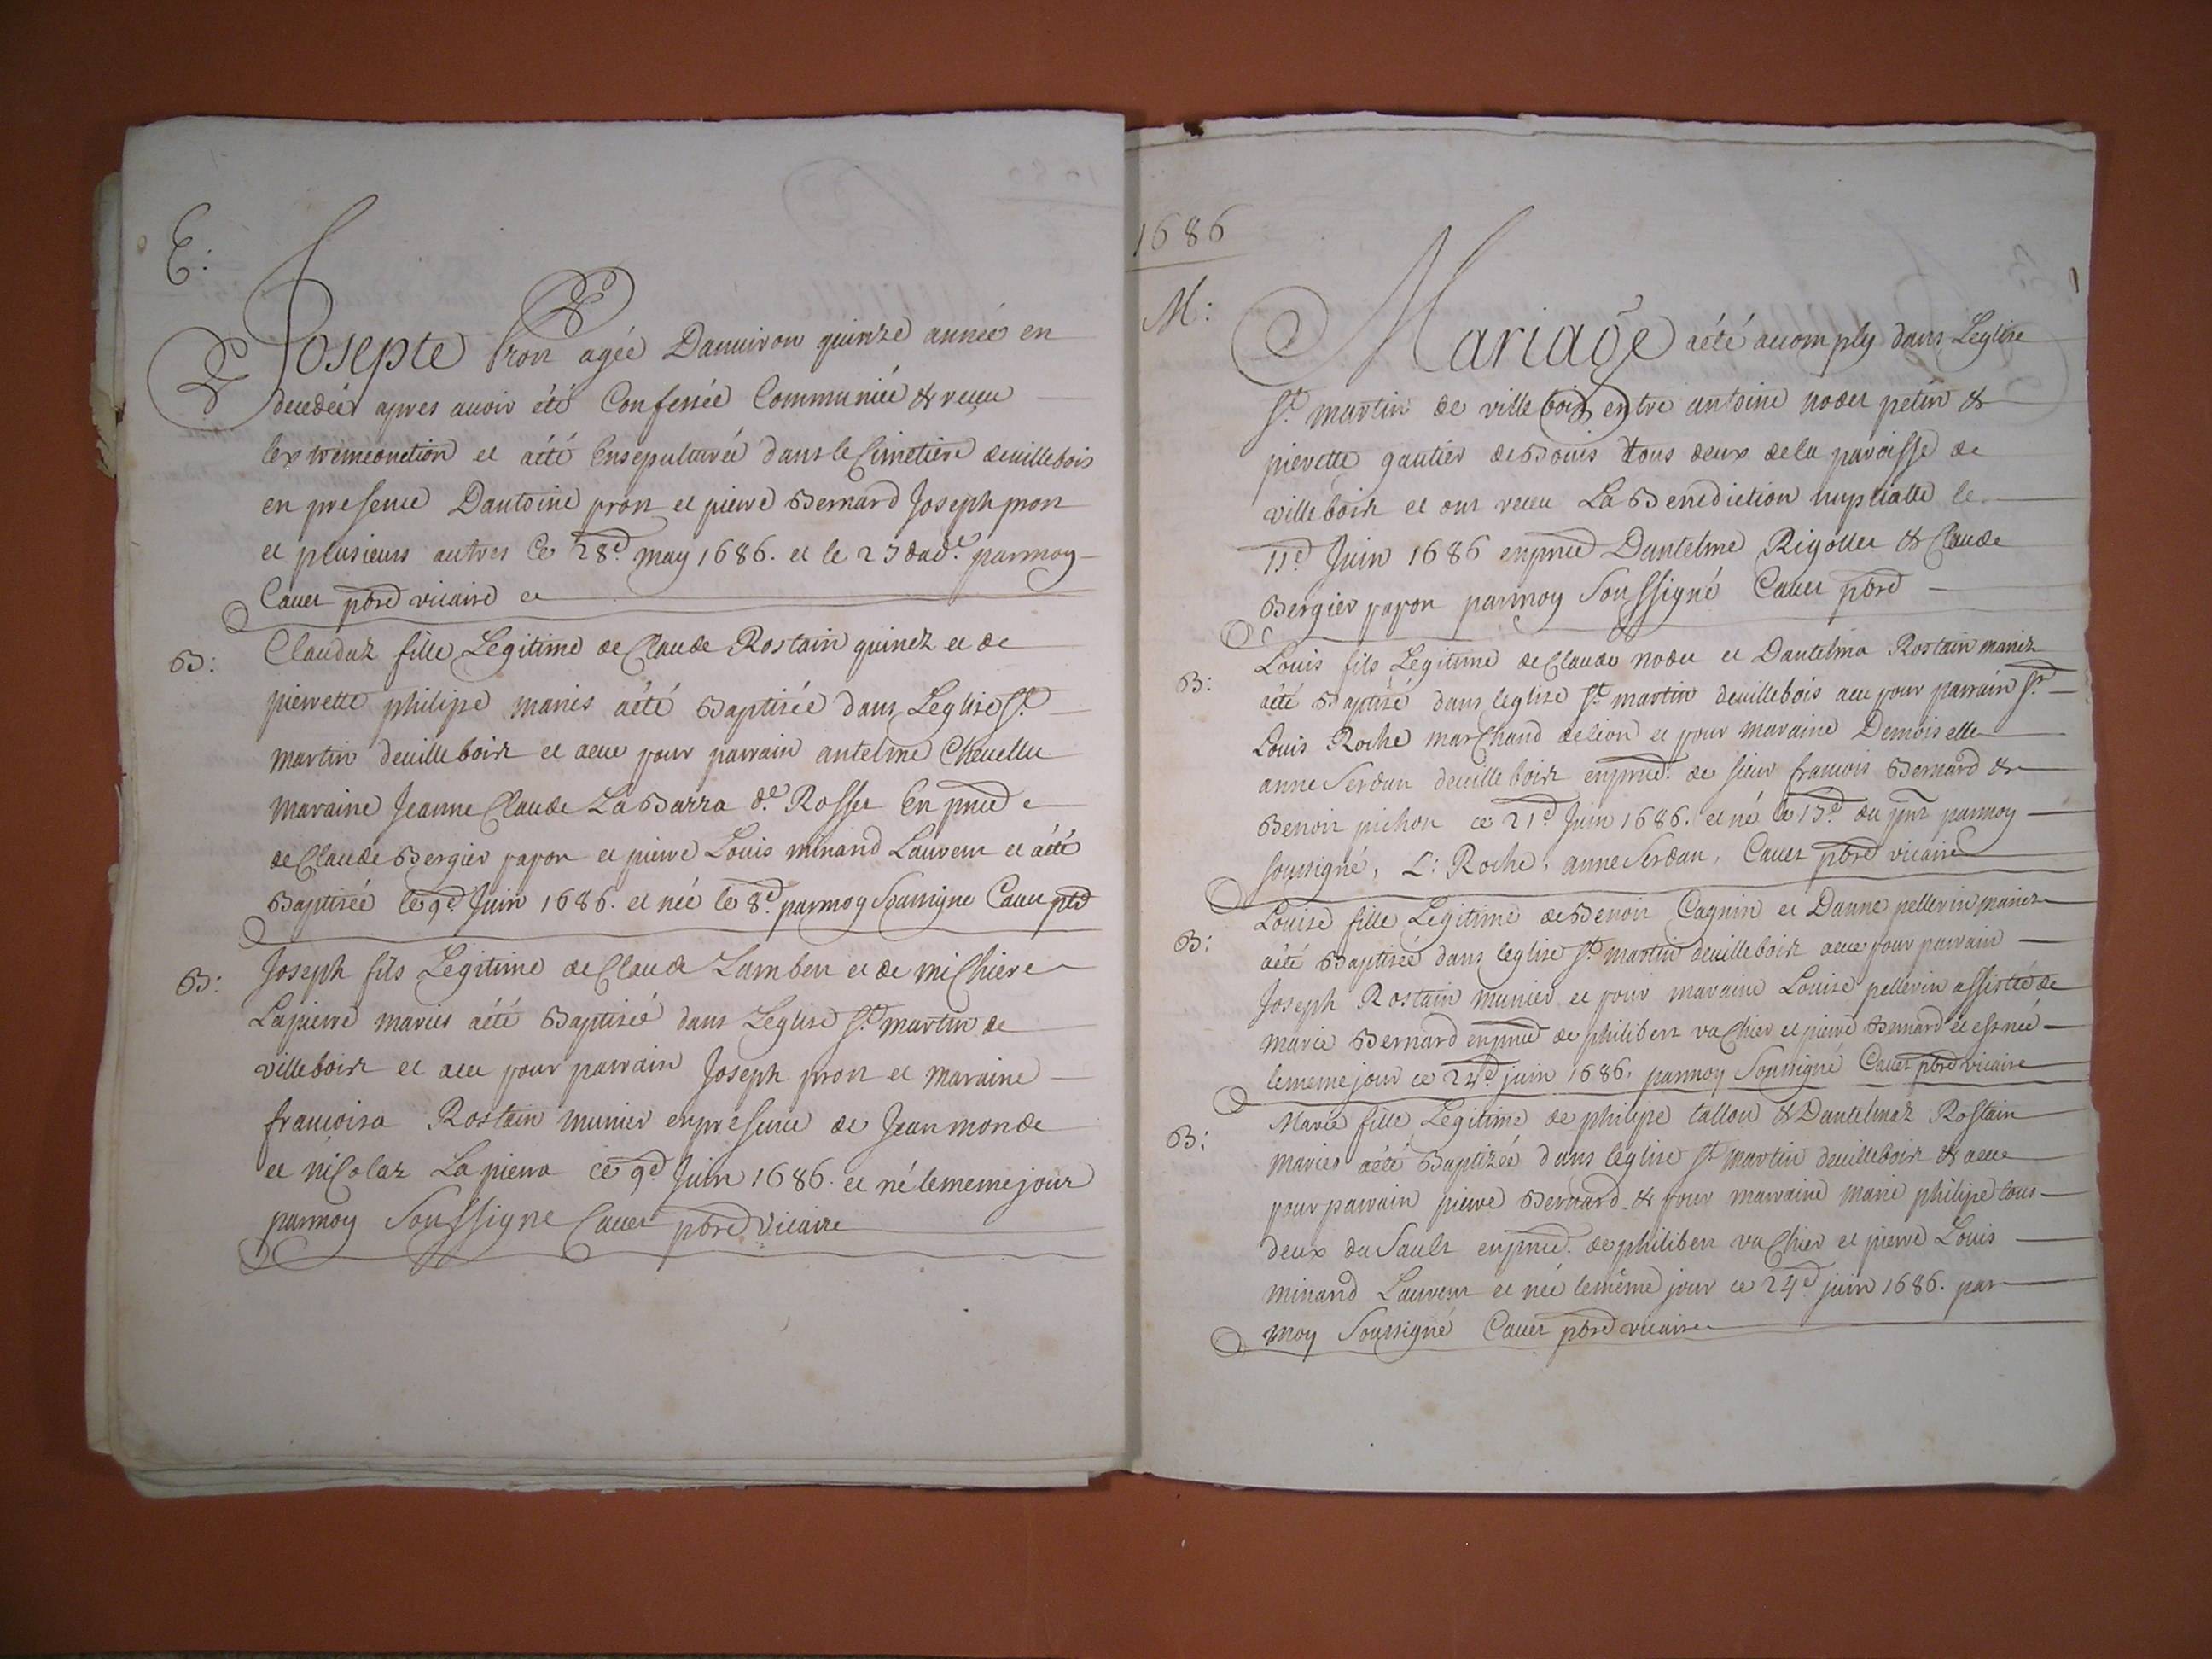 E:
Josepte pron agée Danuiron quinze année en
decedéé apres auoir été Confessée Communiée & receu
lextremeonction et aété Ensepulturéé dans le Cimetiere deuillebois
en presence Dantoine pron et pierre Bernard Joseph pron
et plusieurs autres Ce 28e may 1686. et le 27 dud.t parmoy
Cauet pbre vicaire
B:
Claudaz fille Legitime de Claude Rostain quinez et de
pierrette philipe mariés aété Baptisée dans Leglise St
martin deuille boix et aeue pour parrain antelme Cheuellu
maraine Jeanne Claude La Barra de Rosset En pnce
de Claude Bergier papon et pierre Louis minand Laureur et aété
Baptisée le 9e Juin 1686. et née le 8e parmoy Soussigne Cauet pbre
B:
Joseph fils Legitime de Claude Lambert et de miChiere
Lapierre mariés aété Baptiséé dans Leglise St martin de
villeboix et aeu pour parrain Joseph pron et Maraine
francoisa Rostain munier enpresence de Jean monde
et niColaz La pierra ce 9e Juin 1686. et né lememejour
parmoy Soussigne Cauet pbre vicaire
1686
M:
Mariage aété acomply dans Leglise
St martin de ville boix entre antoine nodet petin &
pierette gautier de Bouis tous deux dela paroisse de
ville boix et ont receu La Benediction nuptialle le
11e Juin 1686 enpnce Dantelme Rigollet & Claude
Bergier papon parmoy Soussigné Cauet pbre
B:
Louis fils Legitime de Claude nodet et Dantelma Rostain mariez
aété Baptisé dans leglise St martin deuillebois aeu pour parrain Sr
Louis Roche marChand delion et pour maraine Demoiselle
anne Serdan deuille boix enpnce de sieur francois Bernard &
Benoit pichon ce 21e Juin 1686. et né le 15e du pnt parmoy
soussigné, L: Roche, anne Serdan, Cauet pbre vicaire
B:
Louise fille Legitime de Benoit Cagnin et Danne pellerin mariez
aété Baptiséé dans leglise St martin deuilleboix aeue pour parrain
Joseph Rostain munier et pour maraine Louise pellerin assistéé de
marie Bernard enpnce de philibert vaChier et pierre Bernard et estnéé
lememejour ce 24e juin 1686. parmoy Soussigné Cauet pbre vicaire
B:
Marie fille Legitime de philipe tallon & Dantelmaz Rostain
mariés aété Baptizéé dans léglise St martin deuilleboix & aeue
pour parrain pierre Bernard & pour marraine marie philipe tous
deux du Sault enpnce. de philibert vaChier et pierre Louis
minand Laureur et néé leméme jour ce 24e juin 1686. par
moy Soussigné Cauet pbre vicaire